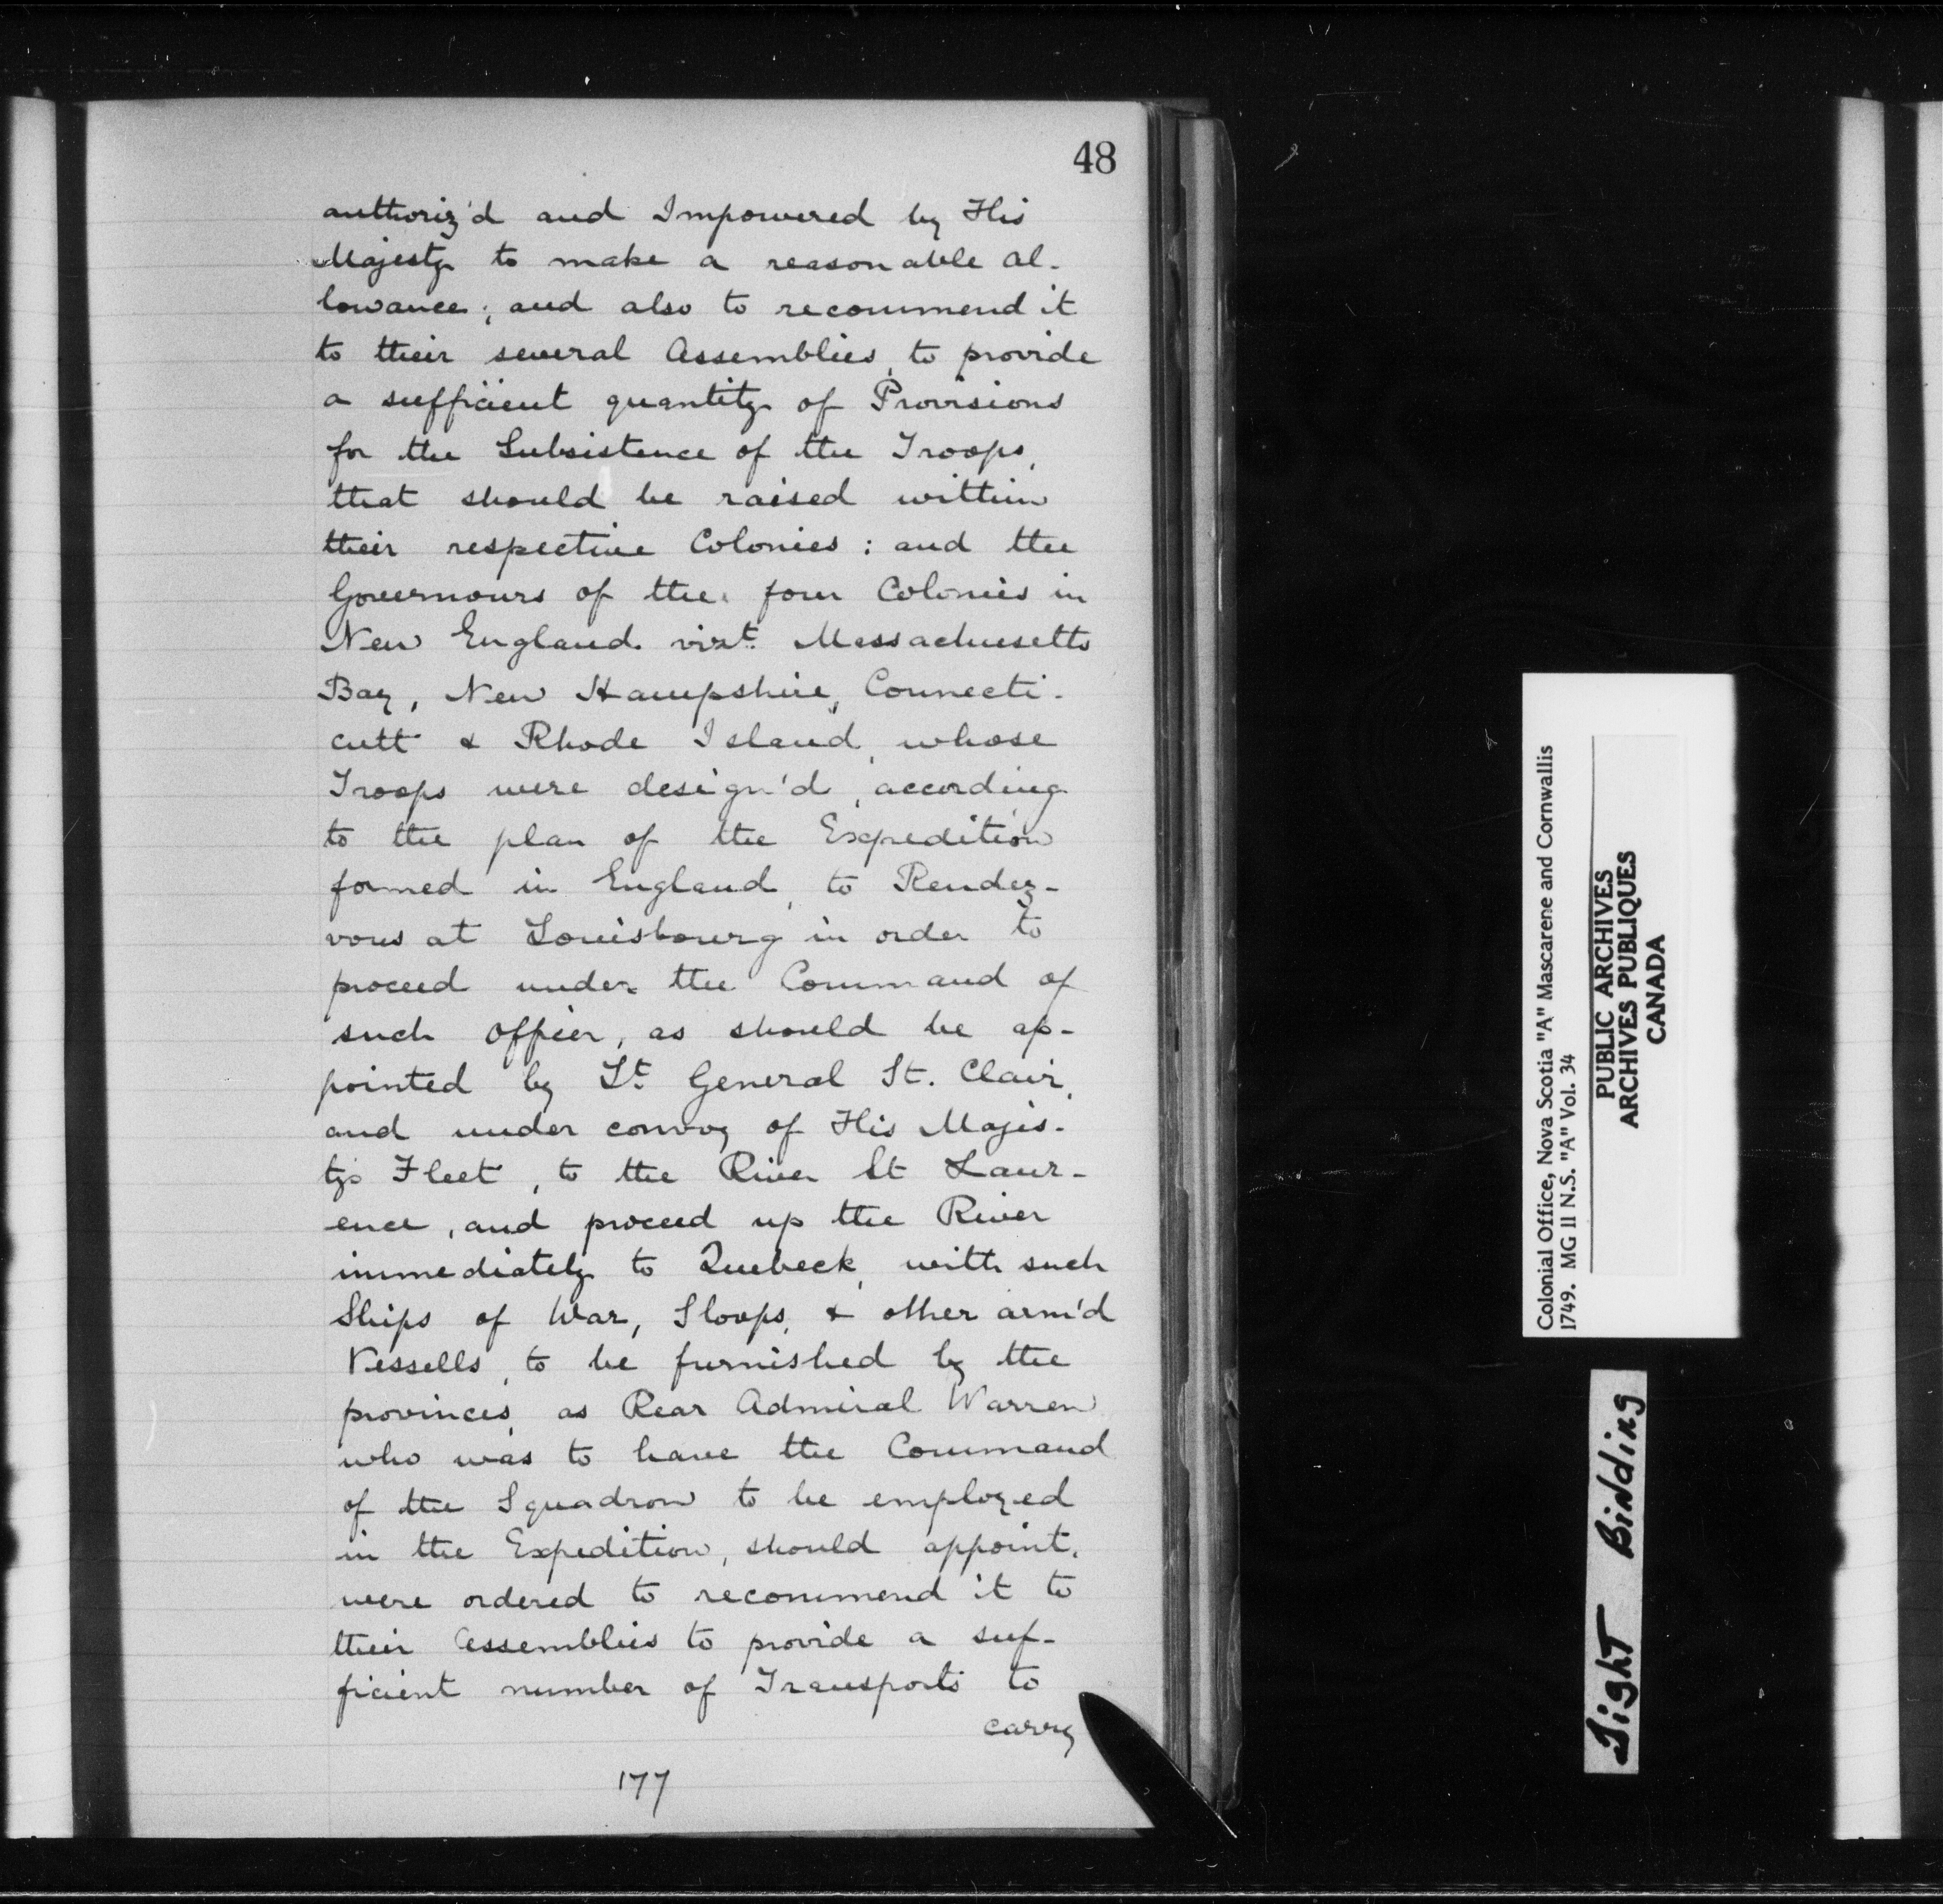 48
authoriz'd and Impowered by His
Majesty to make a reasonable al-
lowance; and also to recommend it
to their several Assemblies, to provide
a sufficient quantity of Provisions
for the Subsistence of the Troops,
that should be raised within
their respective Colonies: and the
Governours of the four Colonies in
New England vizt. Massachusetts
Bay, New Hampshire, Connecti-
cutt & Rhode Island, whose
Troops were design'd, according
to the plan of the Expedition
formed in England, to Rendez-
vous at Louisbourg in order to
proceed under the Command of
such officer, as should be ap-
pointed by Lt. General St. Clair,
and under convoy of His Majes-
ty's Fleet, to the River St Laur-
ence, and proceed up the River
immediately to Quebeck, with such
Ships of War, Sloops, & other arm'd
Vessells, to be furnished by the
provinces, as Rear Admiral Warren
who was to have the Command
of the Squadron to be employed
in the Expedition, should appoint,
were ordered to recommend it to
their Assemblies to provide a suf-
ficient number of Transports to
carry
177
Colonial Office, Nova Scotia "A" Mascarene and Cornwallis
1749. MG 11 N.S. "A" Vol. 34
PUBLIC ARCHIVES
ARCHIVES PUBLIQUES
CANADA
Tight Binding